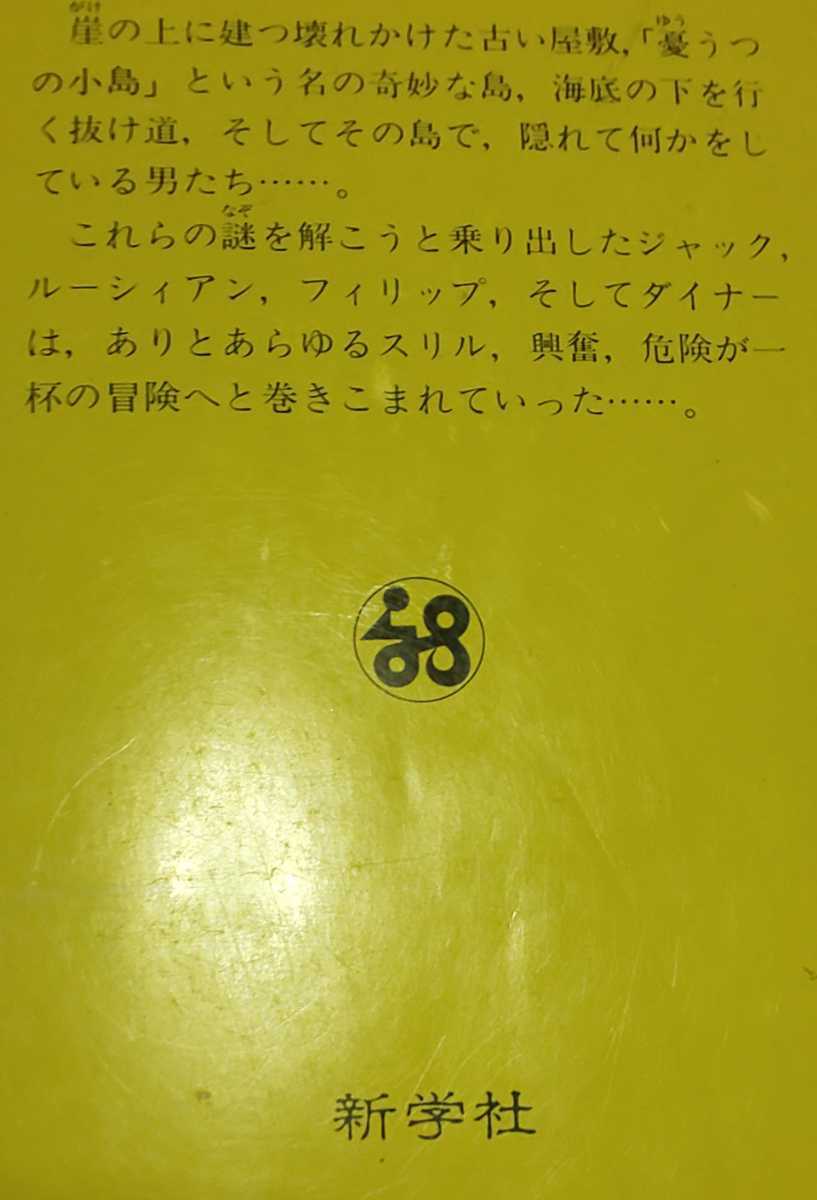 崖の上に建つ壊れかけた古い屋敷,「憂うつ
の小島」という名の奇妙な島, 海底の下を行
く抜け道, そしてその島で, 隠れて何かをし
ている男たち……。
これらの謎を解こうと乗り出したジャック,
ルーシィアン, フィリップ, そしてダイナー
は, ありとあらゆるスリル, 興奮, 危険が一
杯の冒険へと巻きこまれていった……。
新学社